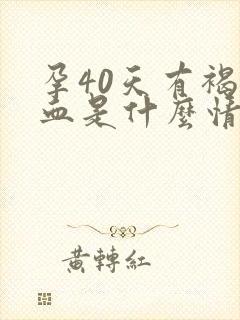 孕40天有褐
血是什麼情
黃轉紅